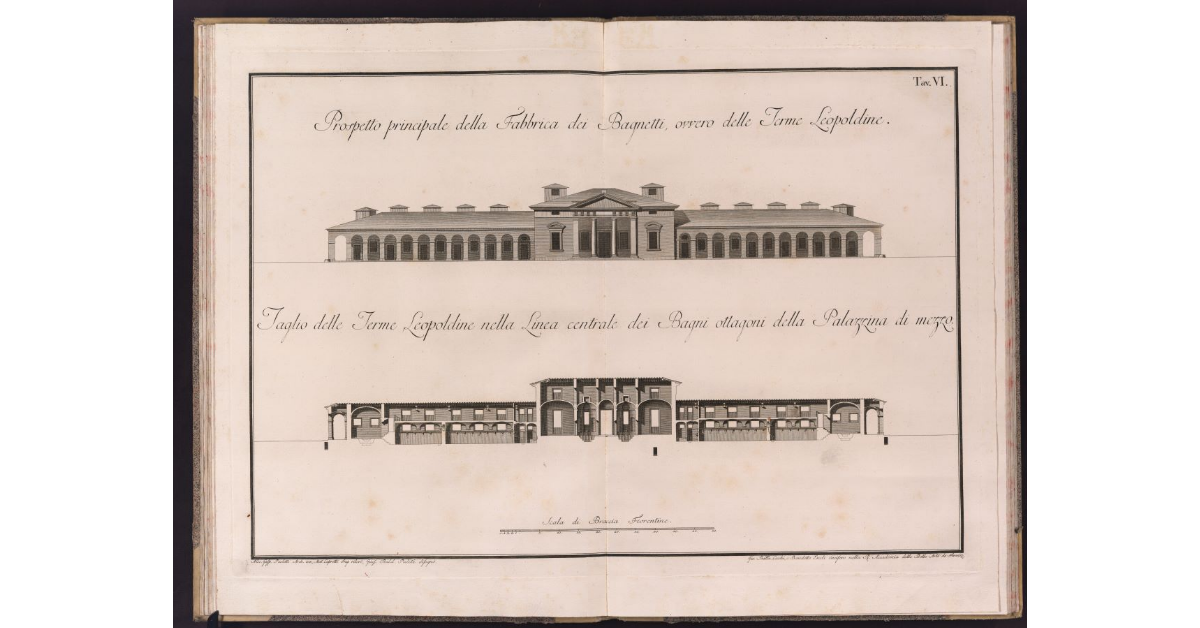 Tav. VI.
Prospetto principale della Fabbrica dei Bagnetti, ovvero delle Terme Leopoldine.
Taglio delle Terme Leopoldine nella Linea centrale dei Bagni ottagoni della Palazzina di mezzo
Scala di Braccia Fiorentine